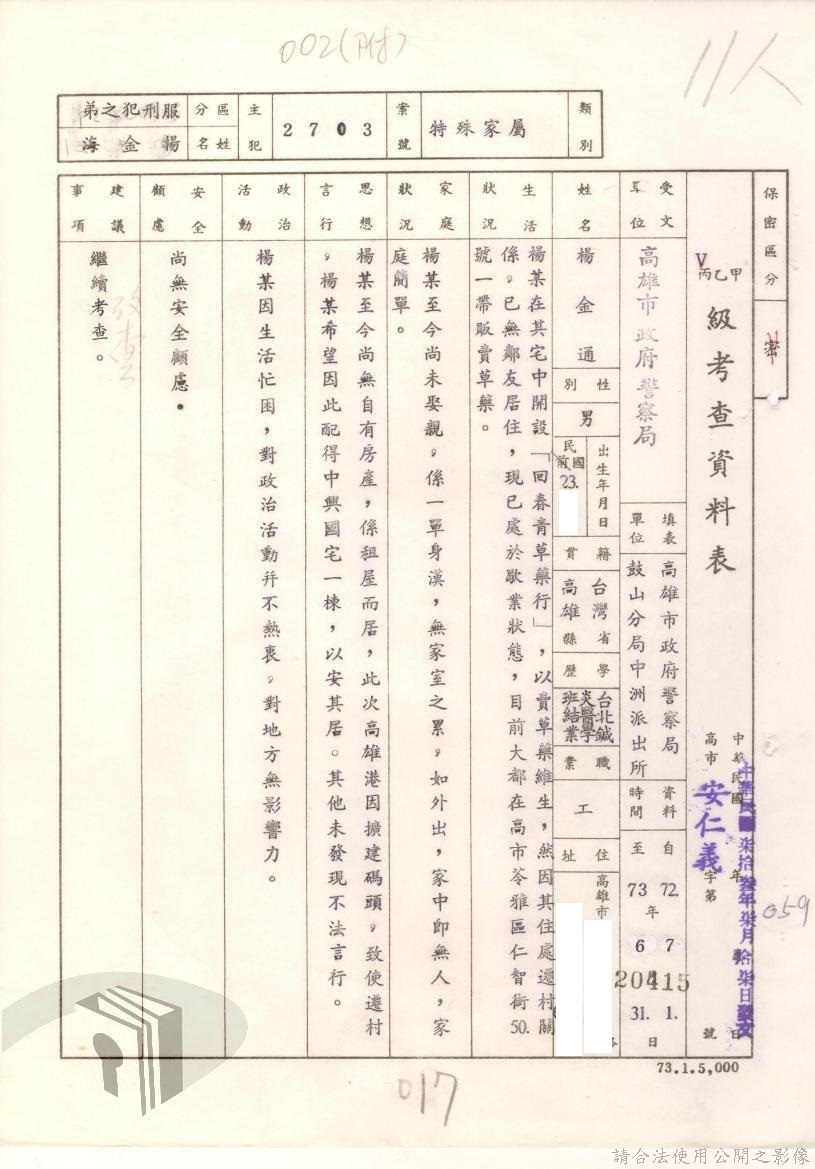 002(附)
11人
類別
特殊家屬
案號
2703
主犯
區分
服刑犯之弟
姓名
楊金海
保密區分
密
V
甲乙丙
級考查資料表
中華民國 年 月 日
中華民國柒拾叁年柒月拾柒日發文
高市
安仁義
字第
20415
號
059
受文單位
高雄市政府警察局
填表單位
高雄市政府警察局
鼓山分局中洲派出所
資料時間
自 72. 7 1.
至 73 年 6 月 31. 日
姓名
楊金通
性別
男
出生年月日
民國前
23.
籍貫
台灣省
高雄縣
學歷
台北鍼
灸醫學
班結業
職業
工
住址
高雄市
生活狀況
楊某在其宅中開設「回春青草藥行」,以賣草藥維生,然因其住處遷村關
係,已無鄰友居住,現已處於歇業狀態,目前大都在高市苓雅區仁智街50.
號一帶販賣草藥。
家庭狀況
楊某至今尚未娶親,係一單身漢,無家室之累,如外出,家中即無人,家
庭簡單。
思想言行
楊某至今尚無自有房產,係租屋而居,此次高雄港因擴建碼頭,致使遷村
,楊某希望因此配得中興國宅一棟,以安其居。其他未發現不法言行。
政治活動
楊某因生活忙困,對政治活動并不熱衷,對地方無影響力。
安全顧慮
尚無安全顧慮。
建議事項
繼續考查。
73.1.5,000
017
請合法使用公開之影像